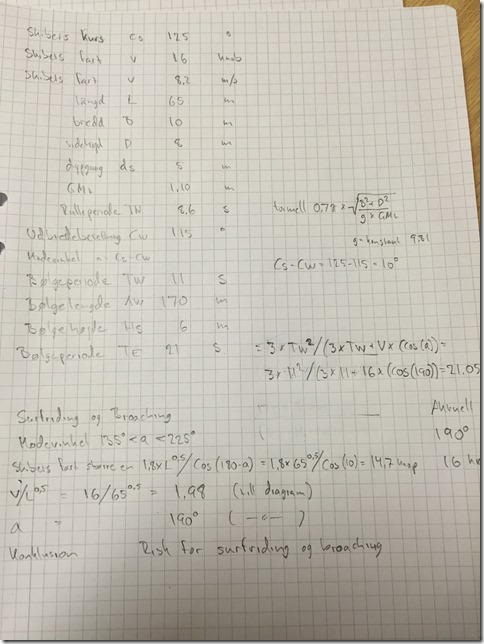 Skibets kurs Cs 125 °
Skibets fart v 16 knob
Skibets fart v 8,2 m/s
længd L 65 m
bredd B 10 m
sidehøjd D 8 m
dypgang ds 5 m
GM1 1,10 m
Rulleperiode TN 8,6 s
formell 0.78 × √B²+D² / g × GM1
g = konstant 9,81
Udbredelsesretning Cw 115 °
Mødevinkel a = Cs-Cw
Cs-Cw = 125-115 = 10°
Bølgeperiode TW 11 s
Bølgelengde λw 170 m
Bølgehøjde Hs 6 m
Bølgeperiode TE 21 s = 3×Tw²/(3×Tw+V×(cos(a)) =
3×11²/(3×11+16×(cos(190)) = 21.05
Surfriding og Broaching Aktuell
Mødevinkel 135° < a < 225° 190°
Skibets fart større en 1,8×L^0,5/cos(180-a) = 1,8×65^0,5/cos(10) = 14,7 knop 16
V/L^0,5 = 16/65^0,5 = 1,98 (till diagram)
a = 190° (-"-)
Konklusion Risk for surfriding og broaching